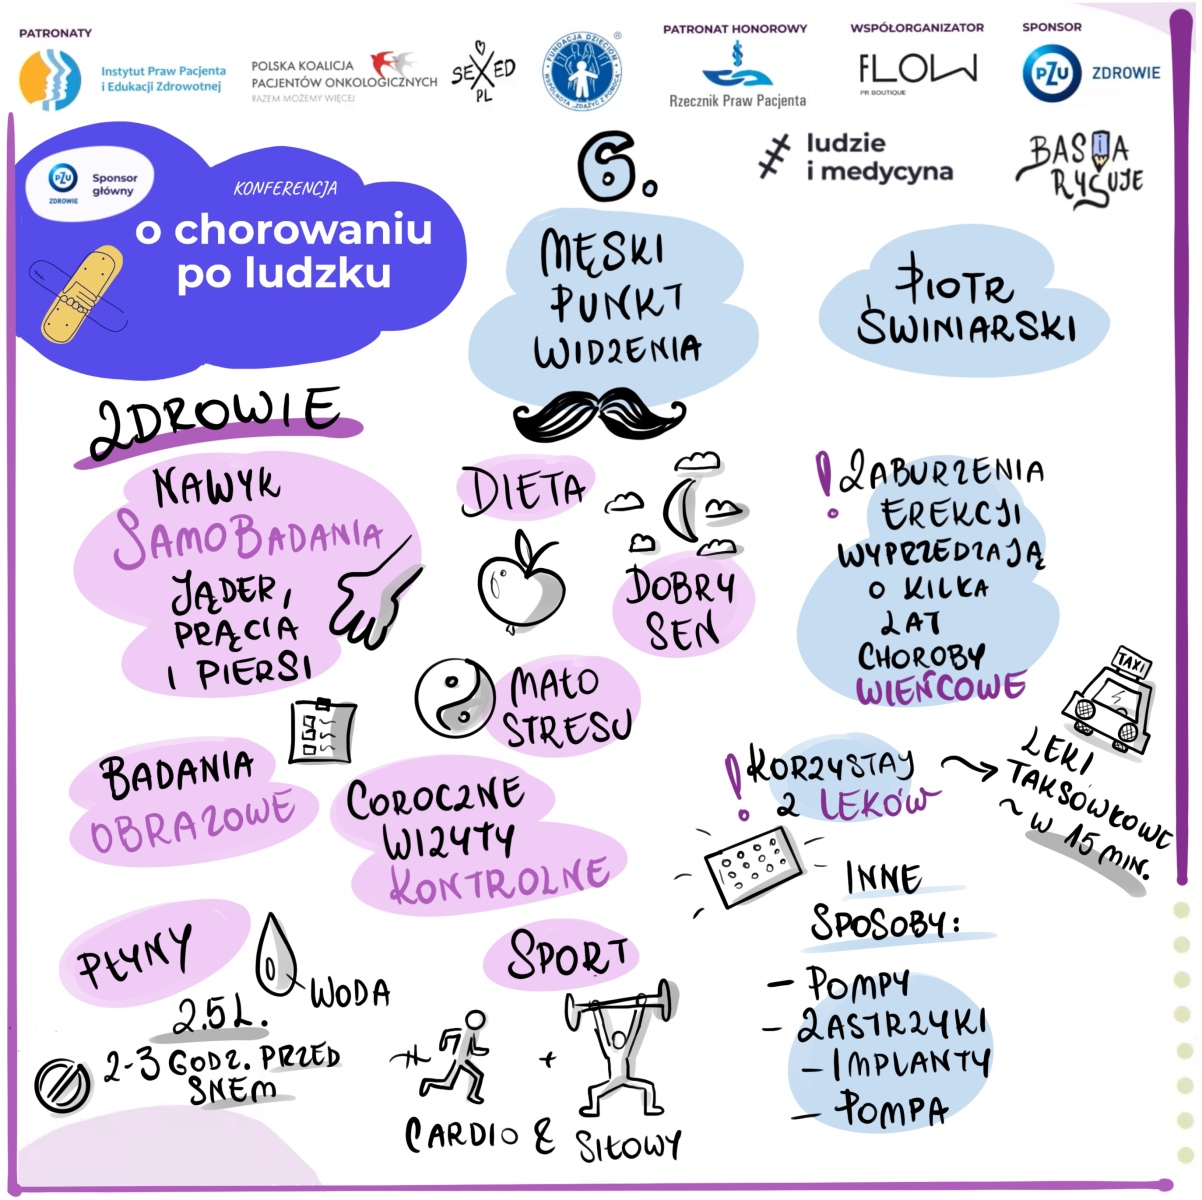 PATRONATY
Instytut Praw Pacjenta
i Edukacji Zdrowotnej
POLSKA KOALICJA
PACJENTÓW ONKOLOGICZNYCH
RAZEM MOŻEMY WIĘCEJ
SEXED
PL
FUNDACJA DZIECIOM
WSPÓLNOTA „ZDĄŻYĆ Z POMOCĄ”
PATRONAT HONOROWY
Rzecznik Praw Pacjenta
WSPÓŁORGANIZATOR
FLOW
PR BOUTIQUE
SPONSOR
PZU ZDROWIE
ludzie
i medycyna
BASIA
RYSUJE
PZU
ZDROWIE
Sponsor
główny
KONFERENCJA
o chorowaniu
po ludzku
6.
MĘSKI
PUNKT
WIDZENIA
PIOTR
ŚWINIARSKI
ZDROWIE
NAWYK
SAMOBADANIA
JĄDER,
PRĄCIA
I PIERSI
DIETA
DOBRY
SEN
MAŁO
STRESU
BADANIA
OBRAZOWE
COROCZNE
WIZYTY
KONTROLNE
PŁYNY
WODA
2.5 L.
2-3 GODZ. PRZED
SNEM
SPORT
+
CARDIO & SIŁOWY
! ZABURZENIA
EREKCJI
WYPRZEDZAJĄ
O KILKA
LAT
CHOROBY
WIEŃCOWE
! KORZYSTAJ
Z LEKÓW
TAXI
LEKI
TAKSÓWKOWE
~ W 15 MIN.
INNE
SPOSOBY:
- POMPY
- ZASTRZYKI
- IMPLANTY
- POMPA